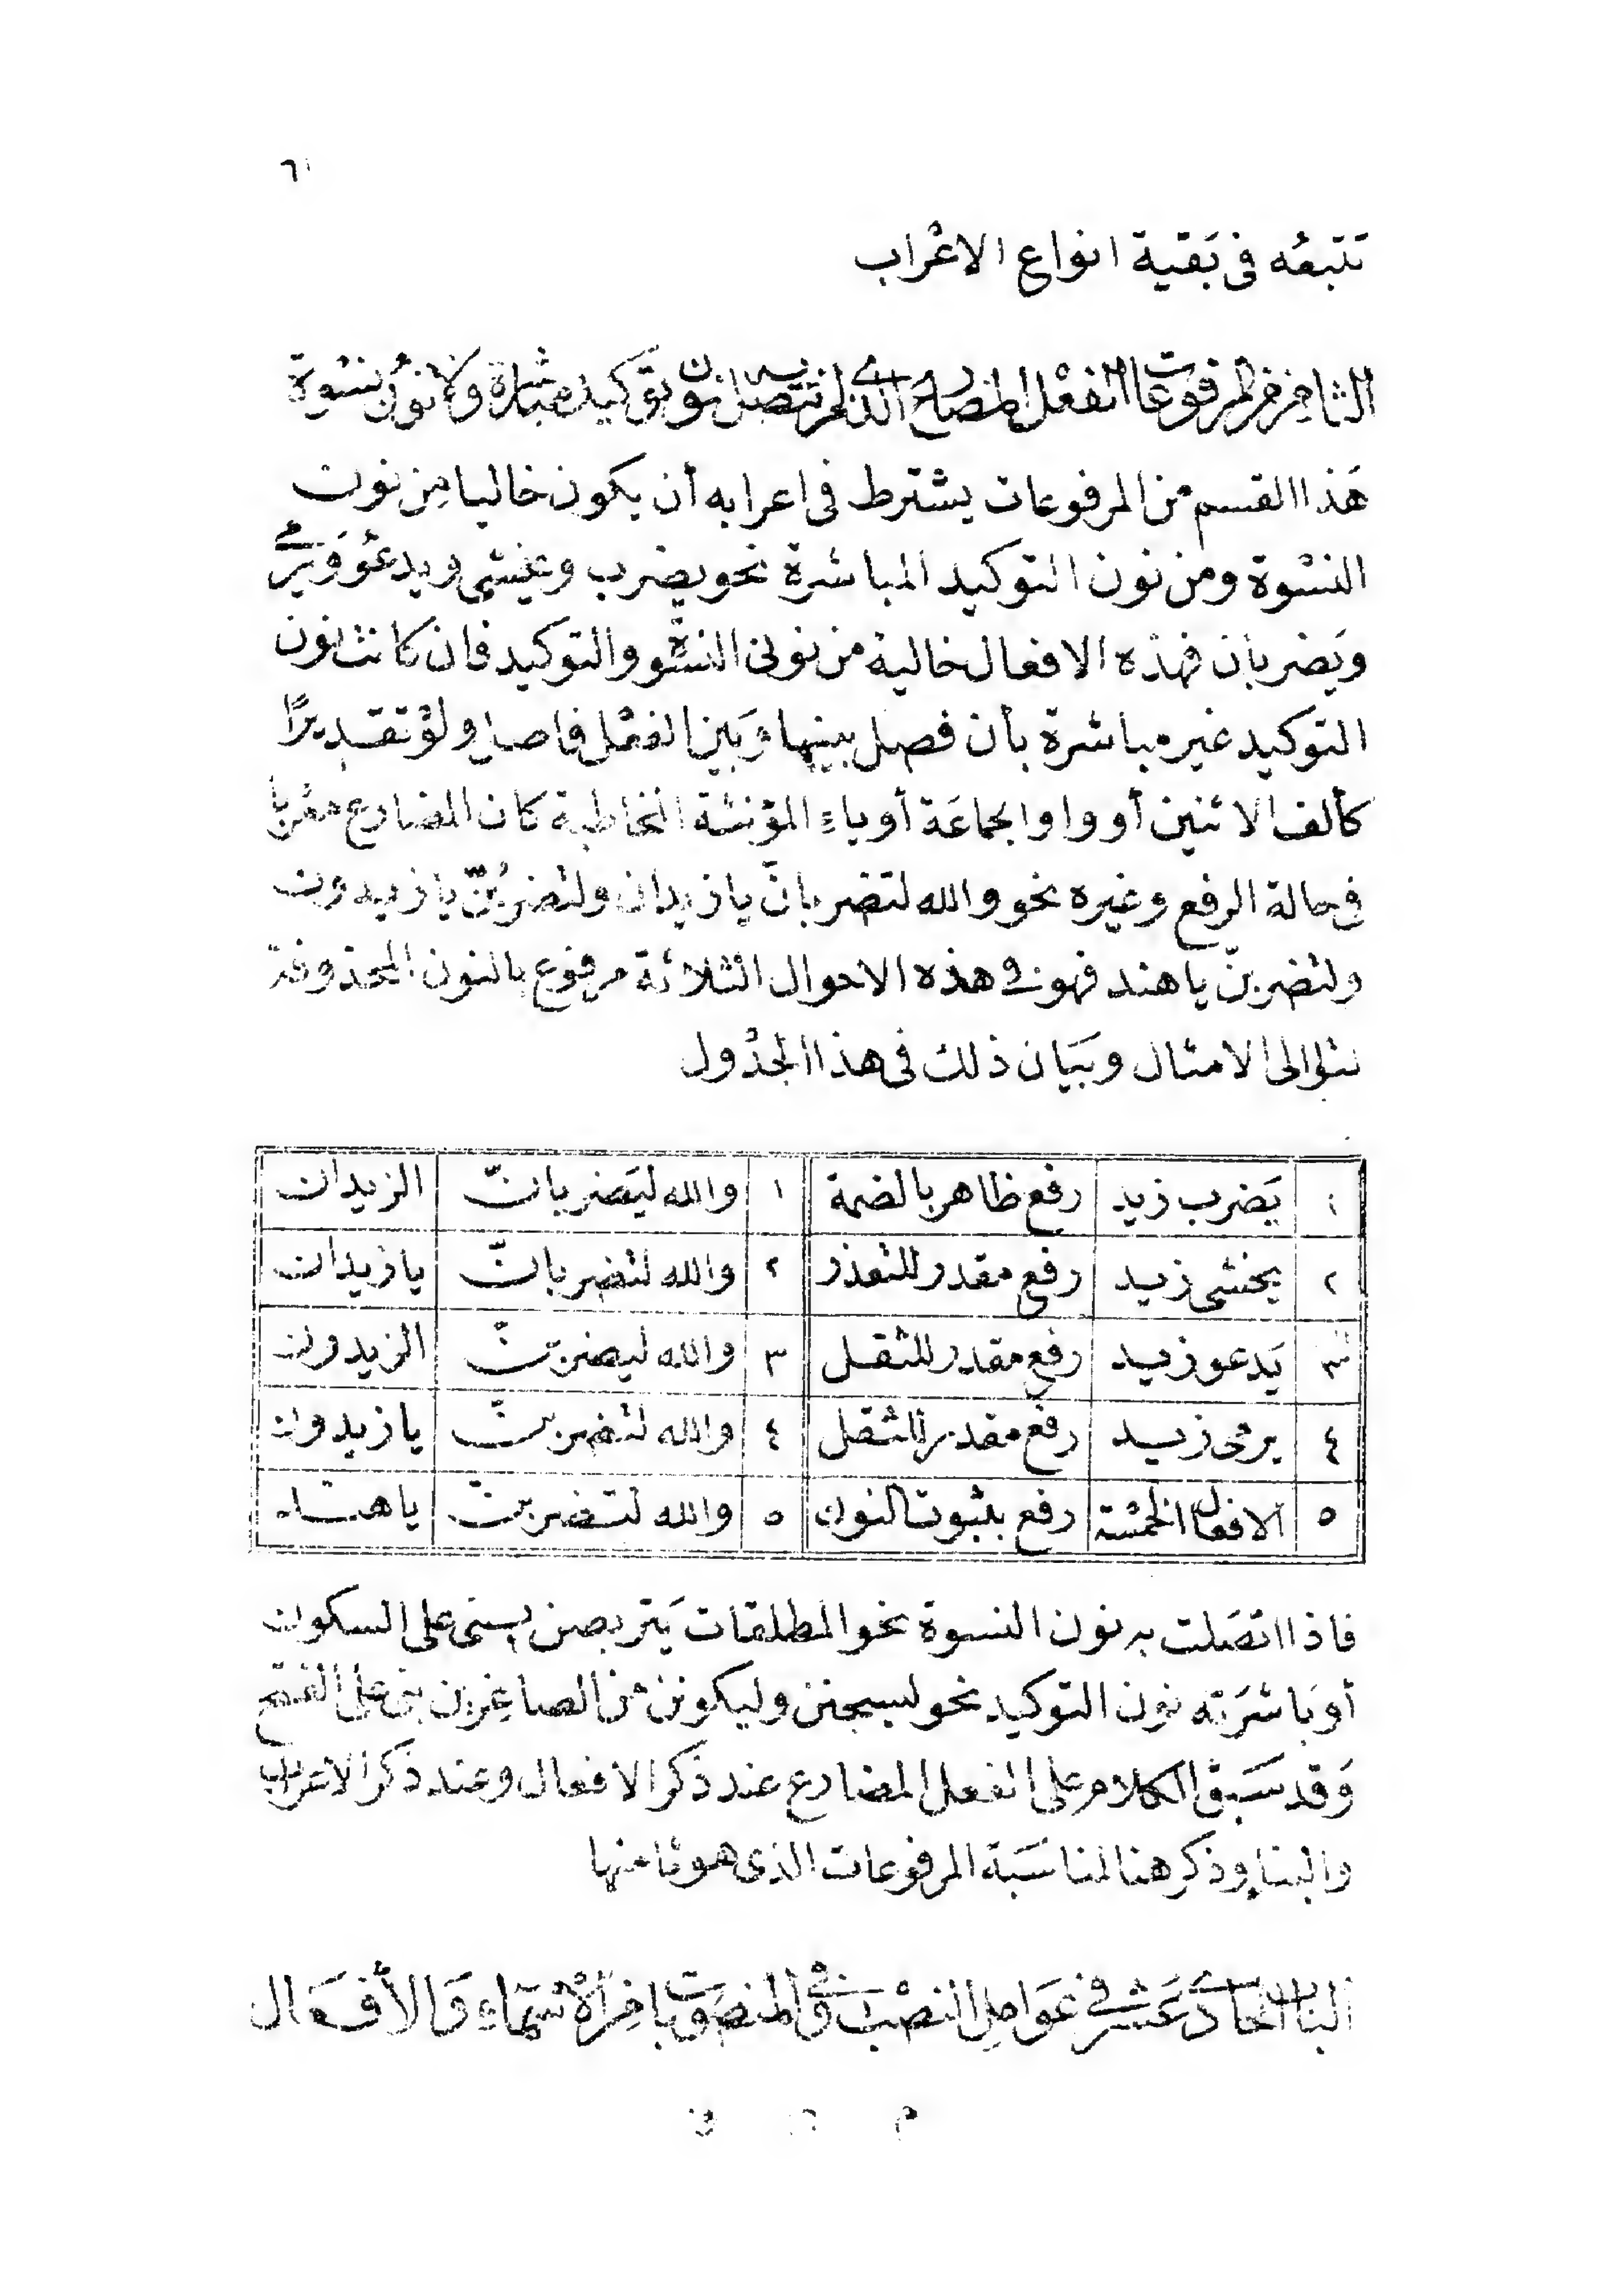 ٦١
تتبعُه فى بَقية انواع الاعْراب
الثامن من المرفوعات الفعْل المضارع الذى لم تتصل به نون توكيد مباشرة ولا نون نسْوة
هَذا القسم من المرفوعات يشترط فى اعرابه أن يكون خاليا مِن نون
النسْوة ومن نون التوكيد المباشرة نحو يضرب ويخشى ويدعُو وَيرمى
وَيضربان فهذه الافعال خالية من نونى النسْوة والتوكيد فان كانت نون
التوكيد غير مباشرة بأن فصل بينها وَبين الفعْل فاصل ولوْ تقديرًا
كألف الاثنين أو واو الجماعَة أو ياءِ المؤنثة المخاطبة كان المضارع معْربا
فى حالة الرفع وغيره نحو والله لتضربانّ يا زيدان ولتضربُنّ يا زيدون
ولتضربنّ يا هند فهو فى هذه الاحوال الثلاثة مرفوع بالنون المحذوفة
لتوالى الامثال وبَيَان ذلك فى هذا الجدْول
١ يَضرب زيد رفع ظاهر بالضمة ١ والله ليَضربانّ الزيدان
٢ يخشى زيد رفع مقدر للتعذر ٢ والله لتضربانّ يا زيدان
٣ يَدعو زيد رفع مقدر للثقل ٣ والله ليضربنّ الزيدون
٤ يرمى زيد رفع مقدر للثقل ٤ والله لتضربنّ يا زيدون
٥ الافعال الخمسْة رفع بثبوت النون ٥ والله لتضربنّ يا هند
فاذا اتصَلت به نون النسوة نحو المطلقات يَتربصن يبنى على السكون
أو بَاشرَته نون التوكيد نحو ليسجنن وليكونن من الصاغِرين بنى على الفتح
وَقد سَبق الكلام على الفعل المضارع عند ذكر الافعال وعند ذكر الاعراب
والبناءِ وذكر هنا لمناسَبة المرفوعات الذى هو ثامنها
البَاب الحَادى عَشر فى عَوامِل النصْب وَفى المنصوبات مِن الأسْمَاءِ وَالأفعَال